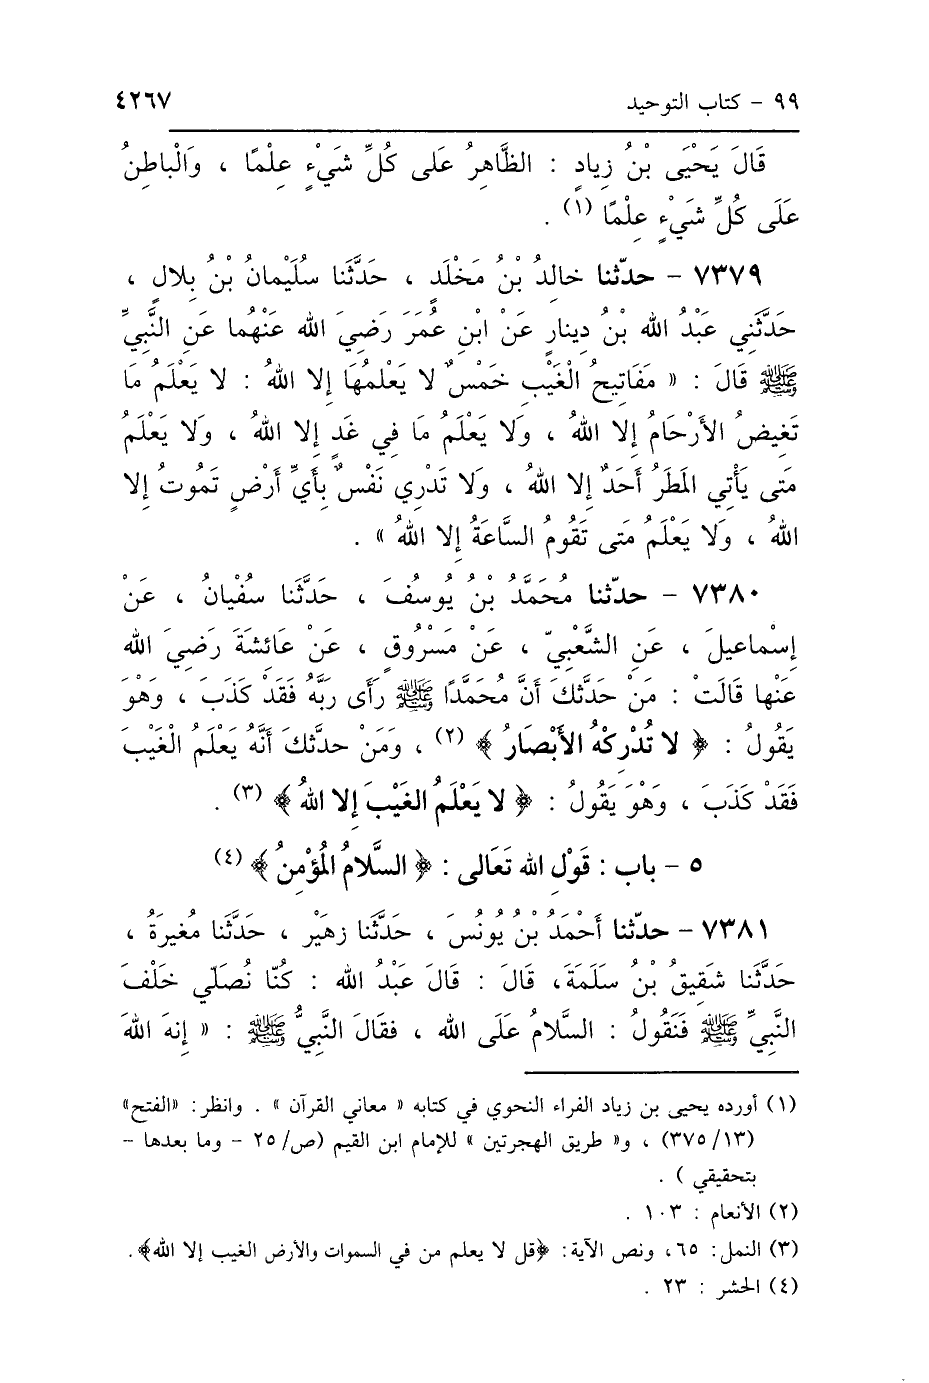 ٩٩ - كتاب التوحيد ٤٢٦٧
قَالَ يَحْيَى بْنُ زِيادٍ : الظَّاهِرُ عَلى كُلِّ شَيْءٍ عِلْمًا ، وَالْباطِنُ
عَلَى كُلِّ شَيْءٍ عِلْمًا (١) .
٧٣٧٩ - حدّثنا خالِدُ بْنُ مَخْلَدٍ ، حَدَّثَنا سُلَيْمانُ بْنُ بِلالٍ ،
حَدَّثَنِي عَبْدُ الله بْنُ دِينارٍ عَنْ ابْنِ عُمَرَ رَضِيَ الله عَنْهُما عَنِ النَّبِيِّ
ﷺ قَالَ : « مَفَاتِيحُ الْغَيْبِ خَمْسٌ لا يَعْلمُهَا إلا اللهُ : لا يَعْلَمُ مَا
تَغِيضُ الأَرْحَامُ إلا اللهُ ، وَلا يَعْلَمُ مَا فِي غَدٍ إلا اللهُ ، وَلا يَعْلَمُ
مَتى يَأْتِي المَطَرُ أَحَدٌ إلا اللهُ ، وَلا تَدْرِي نَفْسٌ بِأَيِّ أَرْضٍ تَمُوتُ إلا
اللهُ ، وَلا يَعْلَمُ مَتى تَقُومُ السَّاعَةُ إلا اللهُ » .
٧٣٨٠ - حدّثنا مُحَمَّدُ بْنُ يُوسُفَ ، حَدَّثَنا سفْيانُ ، عَنْ
إسْماعيلَ ، عَنِ الشَّعْبِيّ ، عَنْ مَسْرُوقٍ ، عَنْ عَائِشَةَ رَضِيَ الله
عَنْها قَالَتْ : مَنْ حَدَّثَكَ أَنَّ مُحَمَّدًا ﷺ رَأَى رَبَّهُ فَقَدْ كَذَبَ ، وَهْوَ
يَقُولُ : ﴿ لا تُدْرِكهُ الأَبْصَارُ ﴾ (٢) ، وَمَنْ حدَّثكَ أَنَّهُ يَعْلَمُ الْغَيْبَ
فَقَدْ كَذَبَ ، وَهْوَ يَقُولُ : ﴿ لا يَعْلَمُ الغَيْبَ إلا اللهُ ﴾ (٣) .
٥ - باب : قَوْلِ الله تَعَالى : ﴿ السَّلامُ المُؤْمِنُ ﴾ (٤)
٧٣٨١ - حدّثنا أحْمَدُ بْنُ يُونُسَ ، حَدَّثَنا زهَيْر ، حَدَّثَنا مُغيرَةُ ،
حَدَّثَنا شَقِيقُ بْنُ سَلَمَةَ، قَالَ : قَالَ عَبْدُ الله : كُنَّا نُصَلّي خَلْفَ
النَّبِيِّ ﷺ فَنَقُولُ : السَّلامُ عَلَى الله ، فقَالَ النَّبِيُّ ﷺ : « إنهَ اللهَ
(١) أورده يحيى بن زياد الفراء النحوي في كتابه « معاني القرآن » . وانظر: «الفتح»
(١٣/ ٣٧٥) ، و« طريق الهجرتين » للإمام ابن القيم (ص/ ٢٥ - وما بعدها -
بتحقيقي ) .
(٢) الأنعام : ١٠٣ .
(٣) النمل: ٦٥، ونص الآية: ﴿قل لا يعلم من في السموات والأرض الغيب إلا الله﴾.
(٤) الحشر : ٢٣ .